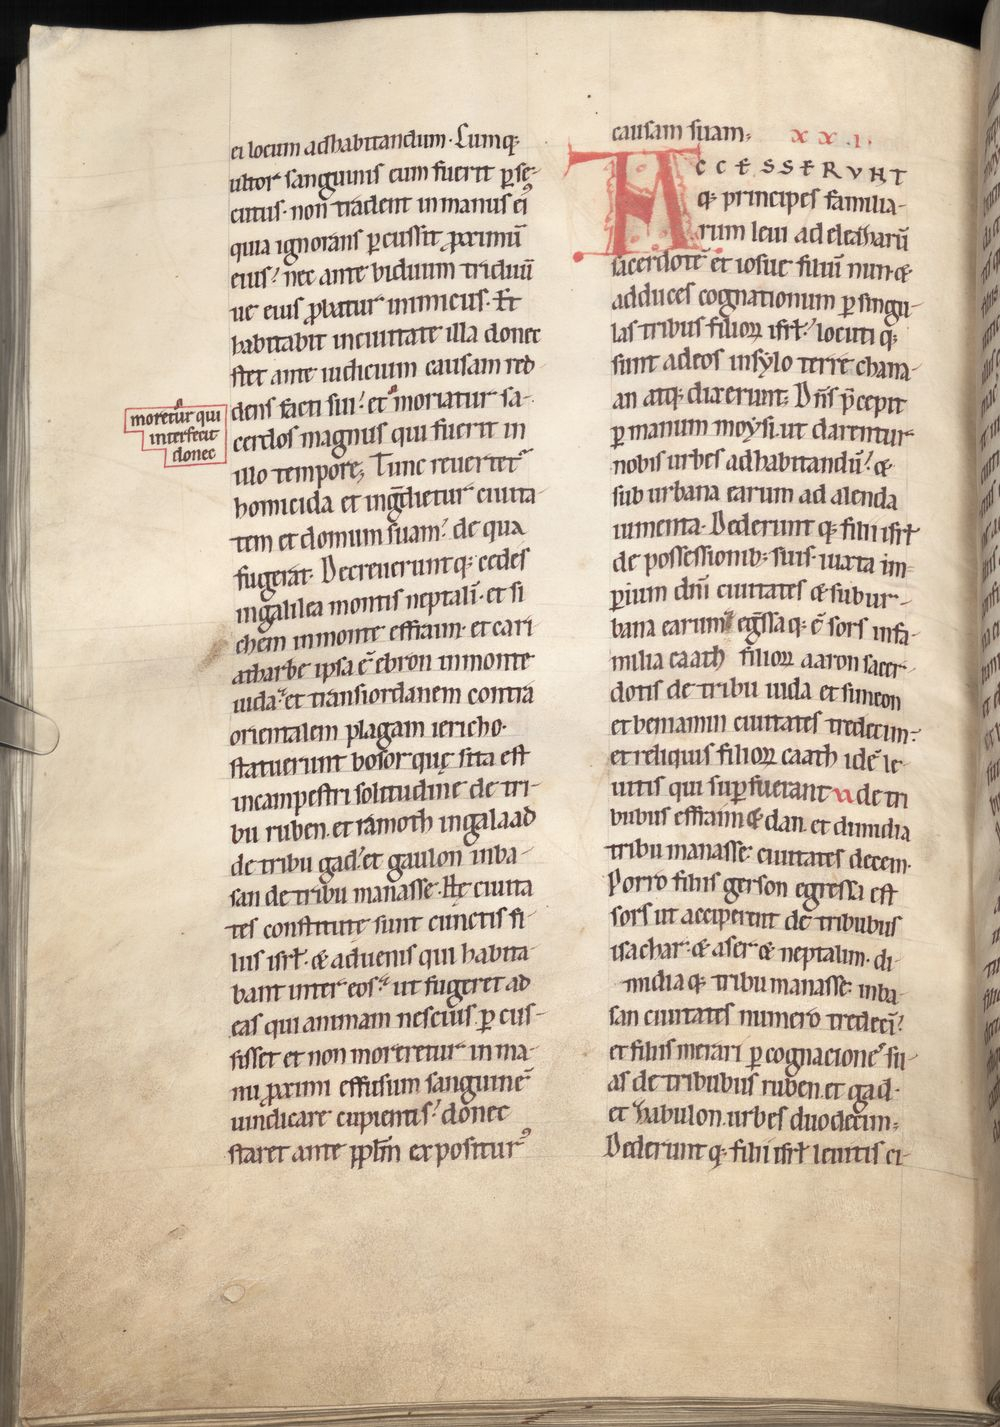 ei locum ad habitandum. Cumq;
ultor sanguinis eum fuerit p̲se-
cutus. non tradent in manus eiꝰ
quia ignorans p̲cussit ꝓximū
eius: nec ante biduum triduū
ue eius ꝓbatur inimicus. Et
habitabit in ciuitate illa donec
stet ante iudicium causam red
dens facti sui: et moriatur sa-
moretur qui
interfecit
donec
cerdos magnus qui fuerit in
illo tempore; Tunc reuertet᷑
homicida et ingdietur ciuita-
tem et domum suam: de qua
fugerat. Decreueruntq; cedes
ingalilea montis neptali. et si
chem in monte effraim. et cari
atharbe ipsa ē ebron in monte
iuda. et transiordanem contra
orientalem plagam iericho.
statuerunt bosor quę sita est
in campestri solitudine de tri-
bu ruben. et ramoth in galaad
de tribu gad. et gaulon in ba-
san de tribu manasse. Hę ciuita
tes constitutę sunt cunctis fi-
liis isrł. & aduenis qui habita-
bant inter eos. ut fugeret ad
eas qui animam nescius p̲cus-
sisset et non moreretur in ma-
nu ꝓximi effusum sanguinē
uindicare cupientis: donec
staret ante pplm̄ expositurꝰ
causam suam; XXI.
ACCESSERVNT
q; principes familia-
rum leui ad eleazarū
sacerdotē et iosue filiū nun. &
ad duces cognationum p̲ singu-
las tribus filioꝝ isrł: locuti q;
sunt ad eos in sylo terrę chana-
an atq; dixerunt; Dn̄s p̄cepit
p̲ manum moysi. ut darentur
nobis urbes ad habitandū: &
sub urbana earum ad alenda
iumenta. Dederunt q; filii isrł
de possessionib; suis. iuxta im-
p̲ium dn̄i ciuitates & subur-
bana earum egssaq; ē sors in fa-
milia caath filioꝝ aaron sacer-
dotis de tribu iuda et simeon
et beniamin ciuitates tredecim:
et reliquis filioꝝ caath id ē le-
uitis qui sup̲fuerant de tri
bubus effraim & dan. et dimidia
tribu manasse. ciuitates decem.
Porro filiis gerson egressa est
sors ut acciperent de tribubus
isachar. & aser & neptalim. di-
midia q; tribu manasse. in ba-
san ciuitates numero tredecī:
et filiis merari p̲ cognacionē su-
as de tribubus ruben. et gad.
et zabulon. urbes duodecim;
Dederunt q; filii isrł leuitis ci-